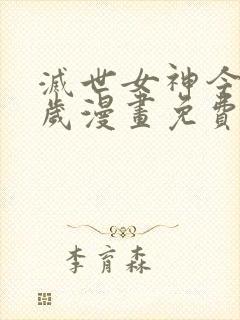 滅世女神今
歲漫畫免費
李育森